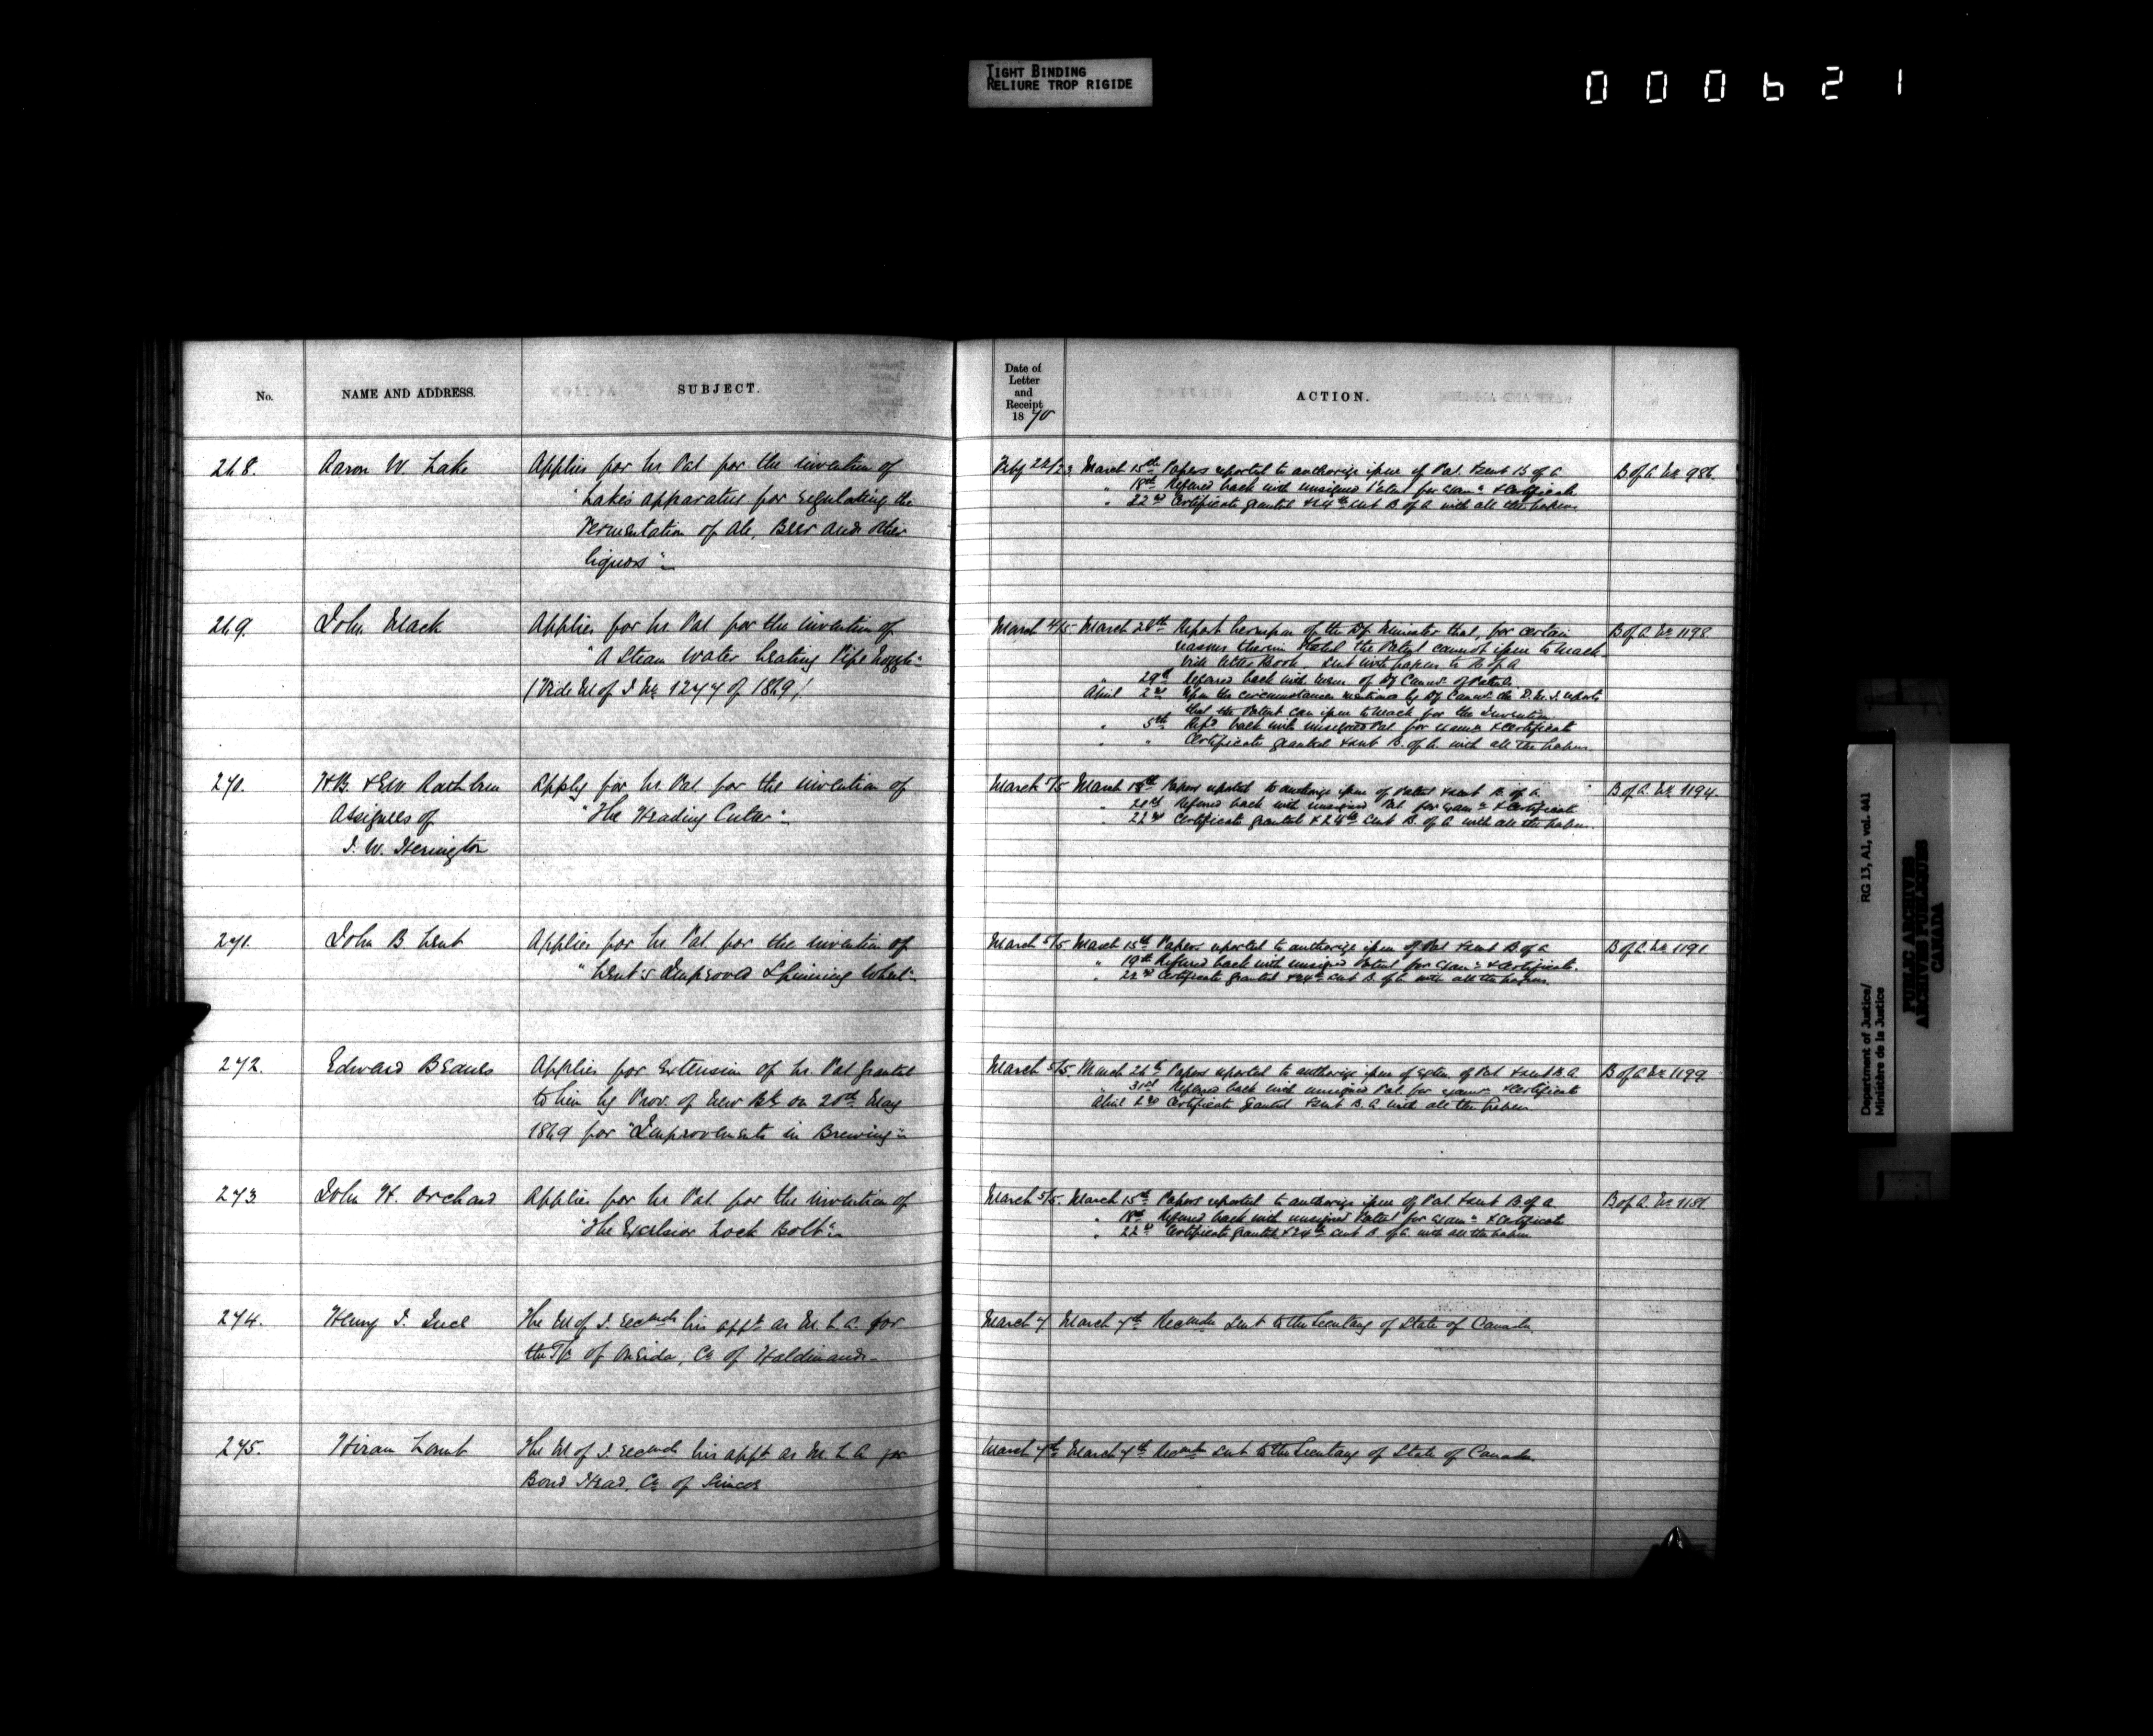 TIGHT BINDING
RELIURE TROP RIGIDE
000621
No.
NAME AND ADDRESS.
SUBJECT.
Date of
Letter
and
Receipt
1870
ACTION.
268.
Aaron W. Lake
Applies for Lr. Pat for the invention of
"Lake's apparatus for regulating the
Fermentation of Ale, Beer and other
liquors"
Feby 22/23
March 15th Papers reported to authorize issue of Pat. & sent B of A
" 18th Refered back with unsigned Patent for Exam.n & Certificate
" 22nd Certificate granted & 24th sent B. of A with all the papers.
B of A. No 986.
269.
John Mack
Applies for Lr. Pat for the invention of
"A Steam Water heating Pipe
(Vide M of J No 1247 of 1869)
March 4/5
March 28th Report hereupon of the Dy. Minister that, for certain
reasons therein stated the Patent cannot issue to Mack
Vide letter Book. Sent with papers to B of A
" 29th Refered back with of Dy Commr of Patents
April 2nd Upon the circumstances mentioned by Dy Commr the D. M. J. reports
that the Patent can issue to Mack for the Invention
" 5th Refd back with unsigned Pat. for exam.n & Certificate
" " Certificate granted & sent B. of A. with all the papers.
B of A No 1198
270.
H.B. & E.W. Rathbun
Assignees of
J. W. Herington
Apply for Lr. Pat. for the invention of
"The Heading Cutter"
March 5/5
March 18th Papers reported to authorize issue of Patent & sent B. of A.
" Refered back with unsigned Pat for exam.n & Certificate
" 22nd Certificate granted & 24th sent B. of A with all the papers.
B of A. No 1194
271.
John B Lent
Applies for Lr. Pat. for the invention of
"Lent's Improved Spinning Wheel"
March 5/5
March 15th Papers reported to authorize issue of Pat & sent B of A
" 19th Refered back with unsigned Patent for Exam.n & Certificate.
" 22nd Certificate granted & 24th sent B. of A. with all the papers.
B of A No 1191
272.
Edward Beanes
Applies for Extension of Lr. Pat granted
to him by Prov. of New Bk on 20th May
1869 for "Improvements in Brewing"
March 5/5.
March 26th Papers reported to authorize issue of Exten. of Pat & sent B. A
" 31st Refered back with unsigned Pat for exam.n & Certificate
April 2nd Certificate granted & sent B. A with all the papers
B of A No 1199.
273.
John H. Orchard
Applies for Lr. Pat. for the invention of
"The Excelsior Lock Bolt"
March 5/5.
March 15th Papers reported to authorize issue of Pat & sent B. of A
" 18th Refered back with unsigned Patent for Exam.n & Certificate
" 22nd Certificate granted, & 24th sent B. of A. with all the papers
B of A. No 1181.
274.
Henry J.
The M of J. recmds his appt. as M. L. A. for
the Tp of Oneida, Co of Haldimand
March 7
March 7th Recmdn sent to the Secretary of State of Canada.
275.
Hiram Lamb
The M of J. recmds his appt. as M. L. A for
Bond Head, Co of Simcoe
March 7th
March 7th Recmdn sent to the Secretary of State of Canada.
Department of Justice/
Ministère de la Justice
RG 13, A1, vol. 441
PUBLIC ARCHIVES
ARCHIVES PUBLIQUES
CANADA